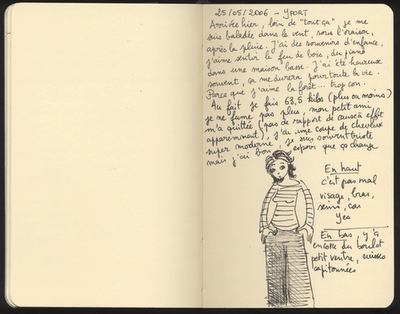 25/05/2006 - YPORT
Arrivée hier, loin de "tout ça" je me
suis baladée dans le vent, sous l'oraison,
après la pluie. J'ai des souvenirs d'enfance,
j'aime sentir le feu de bois, du piano
dans une maison basse. J'ai été heureuse
dans une maison, ça me durera pour toute la vie.
Parce que j'aime la forêt... trop con.
Au fait je fais 63,5 kilos (plus ou moins)
je ne fume pas plus, mon petit ami
m'a quittée (pas de rapport de cause à effet
apparemment), j'ai une coupe de cheveux
super moderne, je suis souvent triste
mais j'ai bon espoir que ça change
En haut
c'est pas mal
visage, bras,
seins, cou
Yes
En bas, y'a
encore du boulot
petit ventre, cuisses
capitonnées